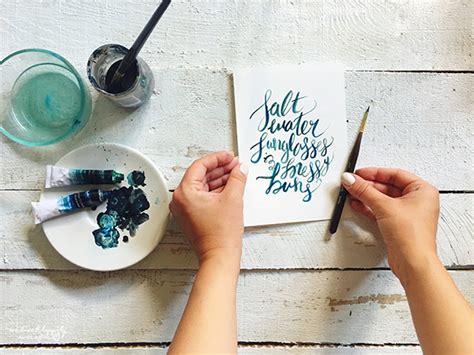 Salt
water
Sunglasses
& messy
buns